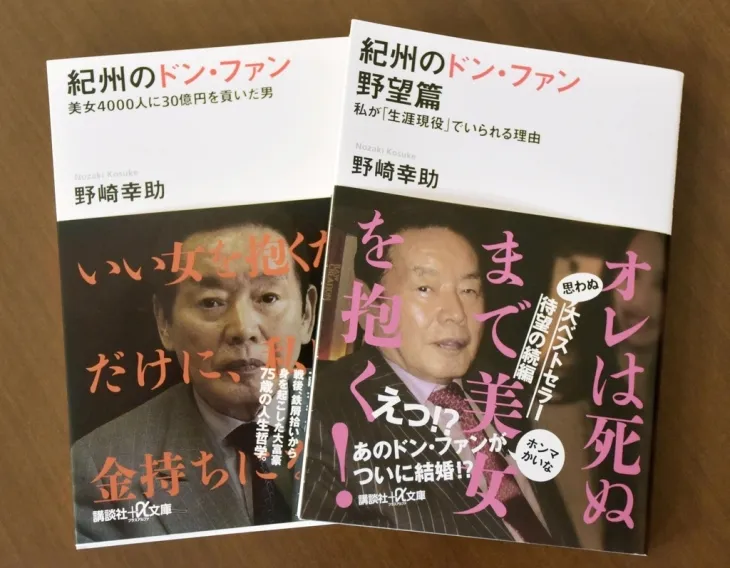 紀州のドン・ファン
美女4000人に30億円を貢いだ男
Nozaki Kosuke
野崎幸助
いい女を抱くた
だけに、私
金持ちに
戦後、鉄屑拾いから
身を起こした大富豪
75歳の人生哲学。
講談社+α文庫
プラスアルファ
紀州のドン・ファン
野望篇
私が「生涯現役」でいられる理由
Nozaki Kosuke
野崎幸助
オレは死ぬ
まで美女
を抱く!
思わぬ
大ベストセラー
待望の続編
ホンマ
かいな
えっ!?
あのドン・ファンが
ついに結婚!?
講談社+α文庫
プラスアルファ